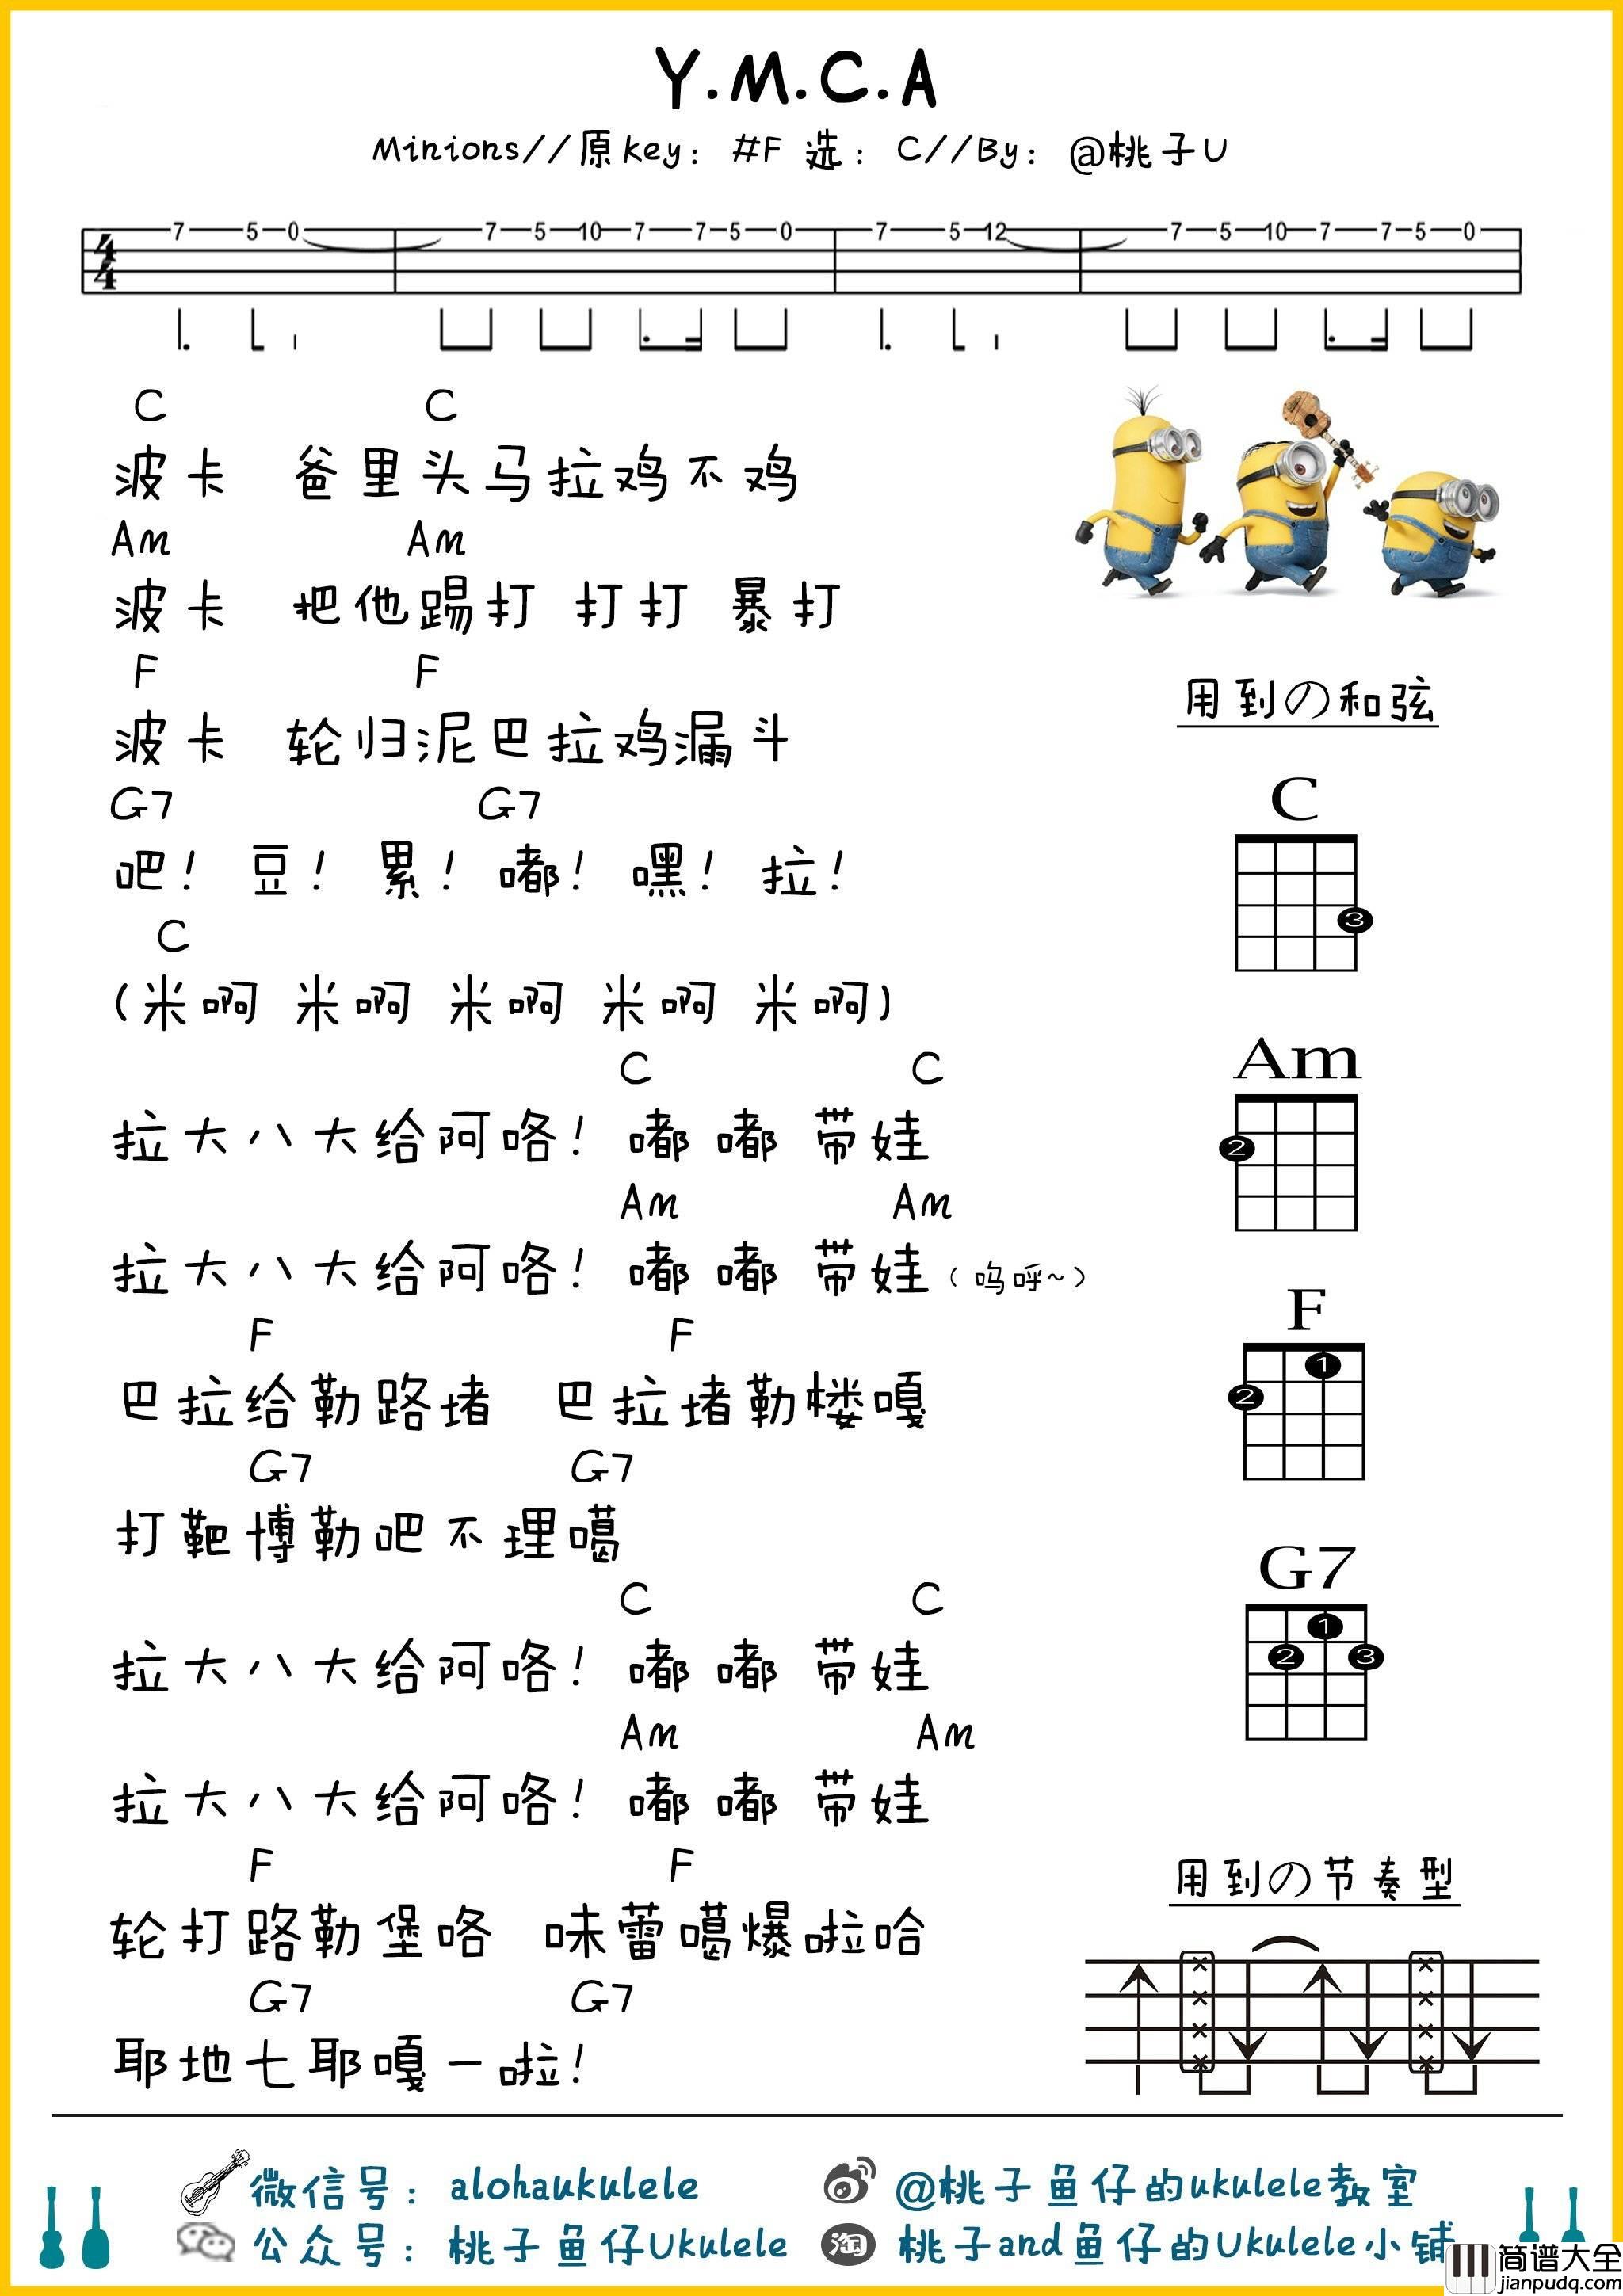 Y.M.C.A
Minions//原key: #F 选: C//By: @桃子U
7 5 0 7 5 10 7 7 5 0 7 5 12 7 5 10 7 7 5 0
4
4
C C
波卡 爸里头马拉鸡不鸡
Am Am
波卡 把他踢打 打打 暴打
F F
波卡 轮归泥巴拉鸡漏斗
G7 G7
吧! 豆! 累! 嘟! 嘿! 拉!
C
(米啊 米啊 米啊 米啊 米啊)
C C
拉大八大给阿咯! 嘟嘟 带娃
Am Am
拉大八大给阿咯! 嘟嘟 带娃(呜呼~)
F F
巴拉给勒路堵 巴拉堵勒楼嘎
G7 G7
打靶博勒吧不理噶
C C
拉大八大给阿咯! 嘟嘟 带娃
Am Am
拉大八大给阿咯! 嘟嘟 带娃
F F
轮打路勒堡咯 味蕾噶爆啦哈
G7 G7
耶地七耶嘎一啦!
用到の和弦
C
3
Am
2
F
1
2
G7
1
2 3
用到の节奏型
微信号: alohaukulele
公众号: 桃子鱼仔Ukulele
@桃子鱼仔的ukulele教室
淘 桃子and鱼仔的Ukulele小铺
简谱大全
jianpudq.com